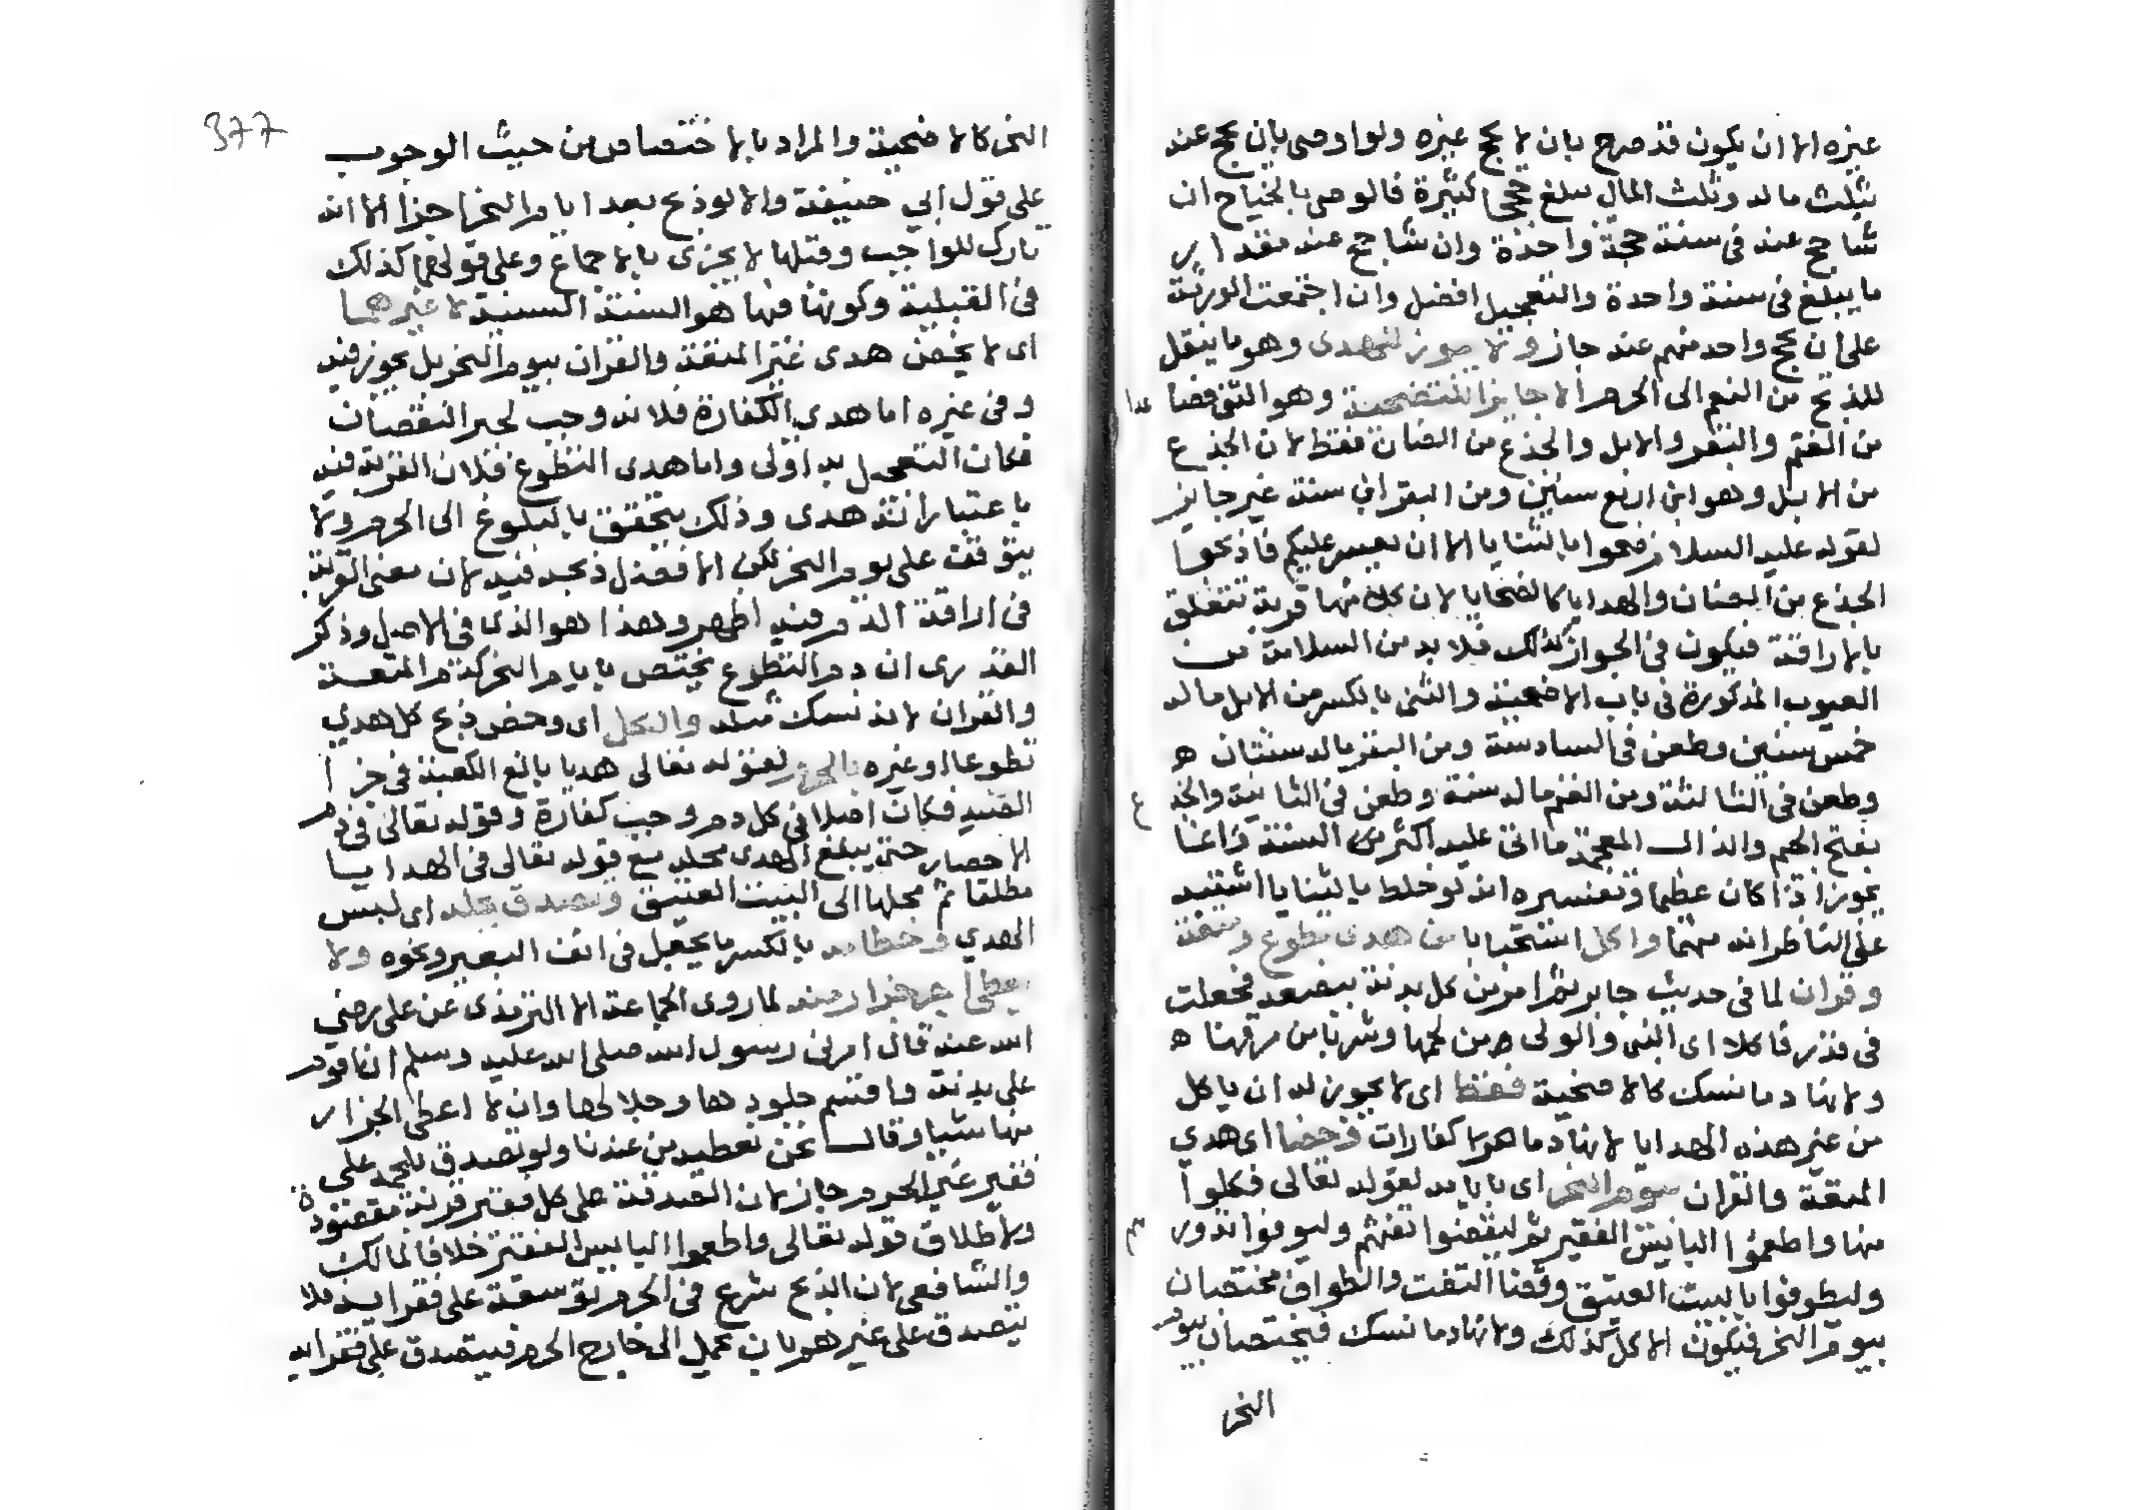 غيره الا ان يكون قد صرح بان لا يحج غيره ولو اوصى بان يحج عنه
بثلث ماله وثلث المال يبلغ حججا كثيرة فالوصي بالخياح ان
شا حج عنه في سنة حجة واحدة وان شا حج عنه مقدار
ما يبلغ في سنة واحدة والتعجيل افضل وان اجتمعت الورثة
على ان يحج واحد منهم عنه جاز ولا يجوز للهدى وهو ما ينقل
للذبح من النعم الى الحرم الا جايز التضحية وهو الثني فصا عدا
من الغنم والبقر والابل والجذع من الضان فقط لان الجذع
من الابل وهو ابن اربع سنين ومن البقر ابن سنة غير جايز
لقوله عليه السلام ضحوا بالثنايا الا ان يعسر عليكم فاذبحوا
الجذع من الضان والهدايا كالضحايا لان كلا منها قربة تتعلق
بالاراقة فيكون في الجواز كذلك فلا بد من السلامة من
العيوب المذكورة في باب الاضحية والثني بالكسر من الابل ماله
خمس سنين وطعن في السادسة ومن البقر ماله سنتان ه
وطعن في الثالثة ومن الغنم ماله سنة وطعن في الثانية والجذع
بفتح الجيم والذال المعجمة ما اتى عليه اكثر من السنة وانما
يجوز اذا كان عظيما وتفسيره انه لو خلط بالثنايا اشتبه
على الناظر انه منها واكل استحبابا من هدى تطوع ومتعة
وقران لما في حديث جابر ثم امر من كل بدنة ببضعة فجعلت
في قدر فاكلا اى النبي والولى من لحمها وشربا من مرقها ه
ولانها دما نسك كالاضحية فقط اى لا يجوز له ان ياكل
من غير هذه الهدايا لانها دما كفارات وخصا اى هدى
المتعة والقران بيوم النحر اى بايامه لقوله تعالى فكلوا
منها واطعموا البائس الفقير ثم ليقضوا تفثهم وليوفوا نذورهم
وليطوفوا بالبيت العتيق وقضا التفث والطواف مختصان
بيوم النحر فيكون الاكل كذلك ولانها دما نسك فيختصان بيوم
النحر
377
النحر كالاضحية والمراد بالاختصاص من حيث الوجوب
على قول ابي حنيفة والا لو ذبح بعد ايام النحر اجزا الا انه
تارك للواجب وقبلها لا يجزى بالاجماع وعلى قولهما كذلك
في القبلية وكونها فيها هو السنة السنية لا غيرهما
اى لا يختص هدى غير المتعة والقران بيوم النحر بل يجوز فيه
وفي غيره اما هدى الكفارة فلانه وجب لجبر النقصان
فكان التعجيل به اولى واما هدى التطوع فلان القربة فيه
باعتبار انه هدى وذلك يتحقق بالبلوغ الى الحرم ولا
يتوقف على يوم النحر لكن الافضل ذبحه فيه لان معنى القربة
في اراقة الدم فيه اظهر وهذا هو الذي في الاصل وذكر
القدورى ان دم التطوع يختص بايام النحر كدم المتعة
والقران لانه نسك مثله والكل اى وخص ذبح كل هدى
تطوعا او غيره بالحرم لقوله تعالى هديا بالغ الكعبة في جزا
الصيد فكان اصلا في كل دم وجب كفارة وقوله تعالى في دم
الاحصار حتى يبلغ الهدى محله مع قوله تعالى في الهدايا
مطلقا ثم محلها الى البيت العتيق وتصدق بجله اى لبس
الهدى وخطامه بالكسر ما يجعل في انف البعير ونحوه ولا
يعطى اجر جزار منه لما روى الجماعة الا الترمذى عن علي رضي
الله عنه قال امرني رسول الله صلى الله عليه وسلم ان اقوم
على بدنة واقسم جلودها وجلالها وان لا اعطى الجزار
منها شيا وقال نحن نعطيه من عندنا ولو تصدق بلحمه على
فقير غير الحرم جاز لان الصدقة على كل فقير قربة مقصودة
ولاطلاق قوله تعالى واطعموا البايس الفقير خلافا لمالك
والشافعي لان الذبح شرع في الحرم توسعة على فقرايه فلا
يتصدق على غيرهم بان يحمل الى خارج الحرم فيتصدق على فقرايه